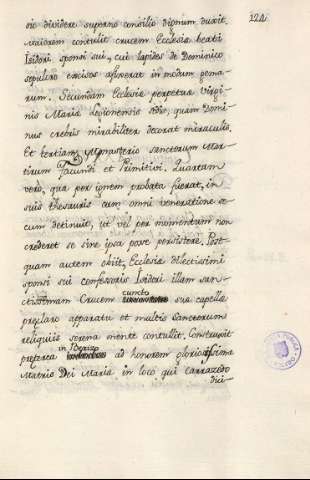 122
sic dividere superno consilio dignum duxit.
Maiorem contulit crucem Ecclesiæ beati
Isidori sponsi sui, cui lapides de Dominico
sepulcro excisos afixerat in modum gema-
rum. Secundam Ecclesiæ perpetuæ Virgi-
nis Mariæ Legionensis sedis, quam Domi-
nus crebris mirabiliter decorat miraculis.
Et tertiam Monasterio sanctorum Mar-
tirum Facundi et Primitivi. Quartam
vero, quæ per ignem probata fuerat, in
suis thesauris cum omni veneratione se-
cum detinuit, ut vel per momentum non
crederet se sine ipsa posse persistere. Post-
quam autem obiit, Ecclesiæ dilectissimi
sponsi sui confessoris Isidori illam san-
ctissimam Crucem cuncto suæ capellæ
præclaro apparatu et multis Sanctorum
reliquiis serena mente contullit. Construxit
præterea in Iberizo ad honorem gloriosissimæ
Matris Dei Mariæ in loco qui Carrazedo
dici-